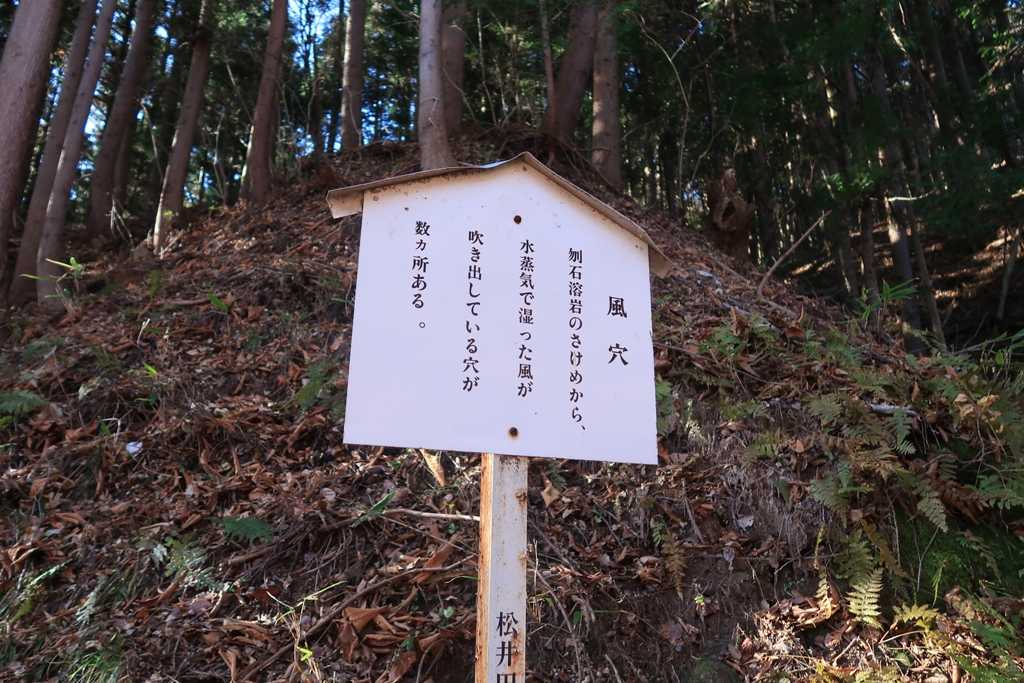 風穴
刎石溶岩のさけめから、
水蒸気で湿った風が
吹き出している穴が
数ヵ所ある。
松井田